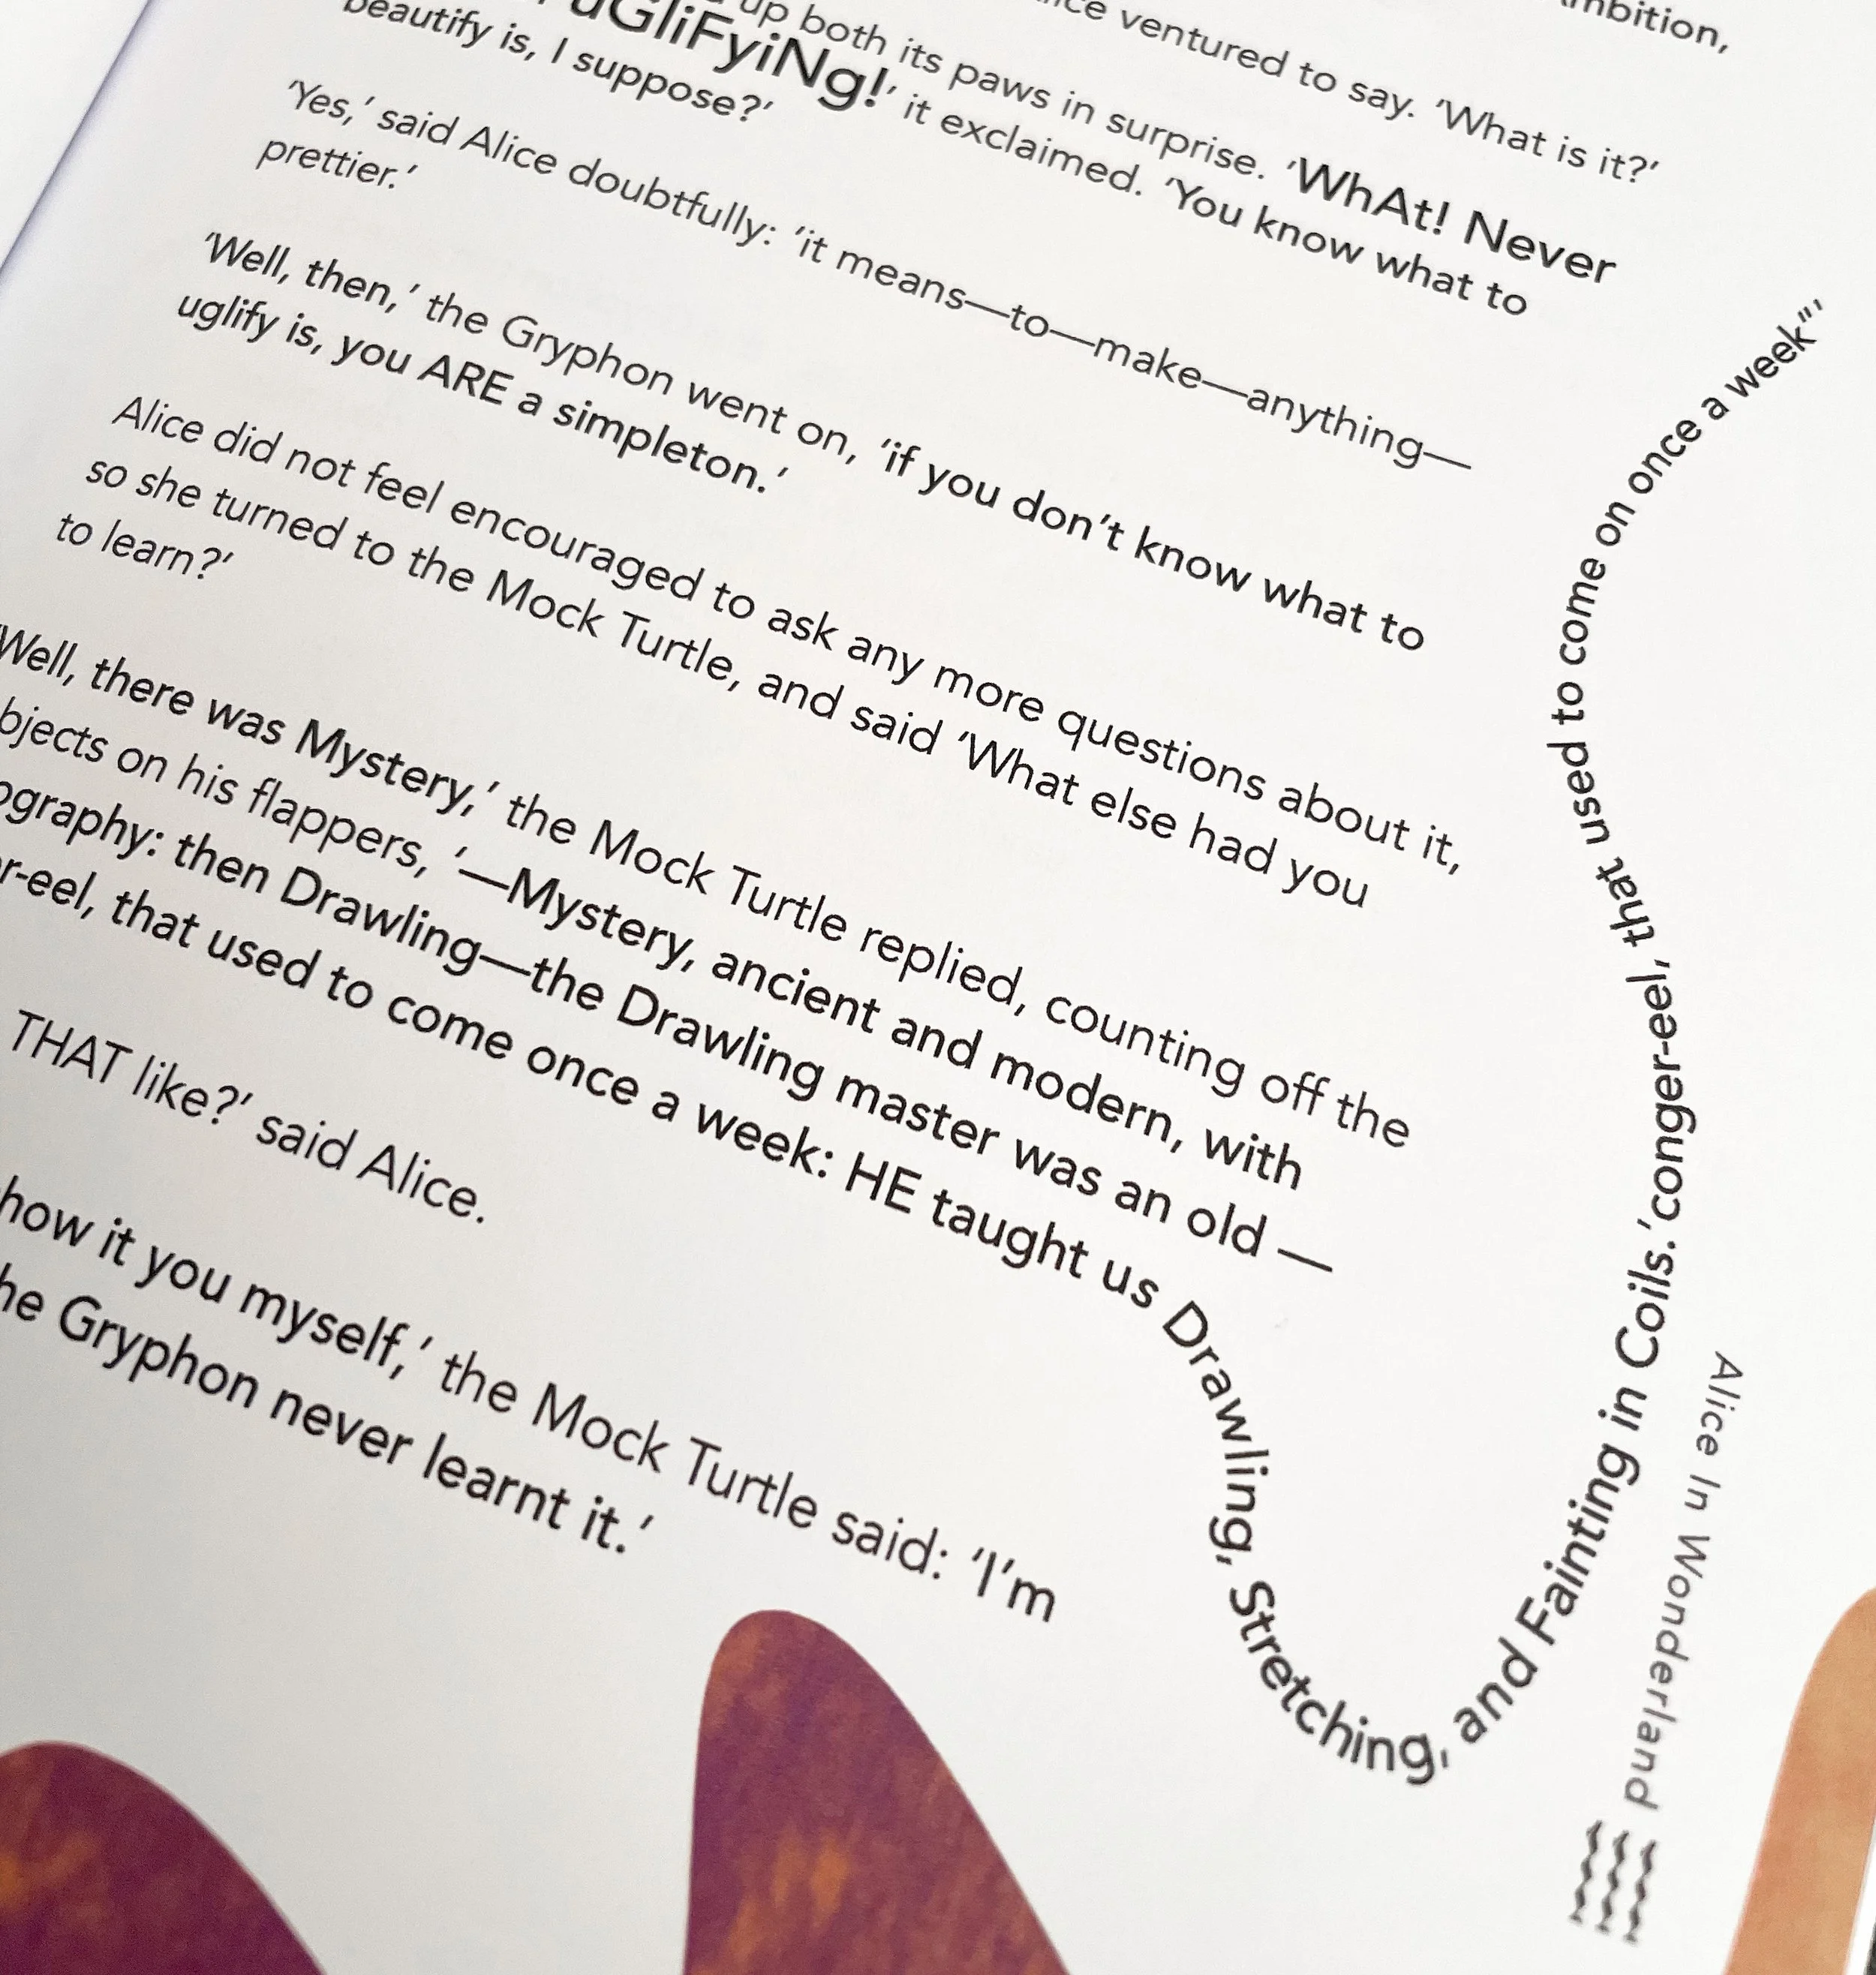 mbition,
ce ventured to say. ‘What is it?’
up both its paws in surprise. ‘WhAt! Never
uGliFyiNg!’ it exclaimed. ‘You know what to
beautify is, I suppose?’
‘Yes,’ said Alice doubtfully: ‘it means—to—make—anything—
prettier.’
‘Well, then,’ the Gryphon went on, ‘if you don’t know what to
uglify is, you ARE a simpleton.’
Alice did not feel encouraged to ask any more questions about it,
so she turned to the Mock Turtle, and said ‘What else had you
to learn?’
‘Well, there was Mystery,’ the Mock Turtle replied, counting off the
bjects on his flappers, ‘—Mystery, ancient and modern, with
ography: then Drawling—the Drawling master was an old —
r-eel, that used to come once a week: HE taught us Drawling, Stretching, and Fainting in Coils.’conger-eel, that used to come on once a week”’
THAT like?’ said Alice.
how it you myself,’ the Mock Turtle said: ‘I’m
he Gryphon never learnt it.’
Alice In Wonderland